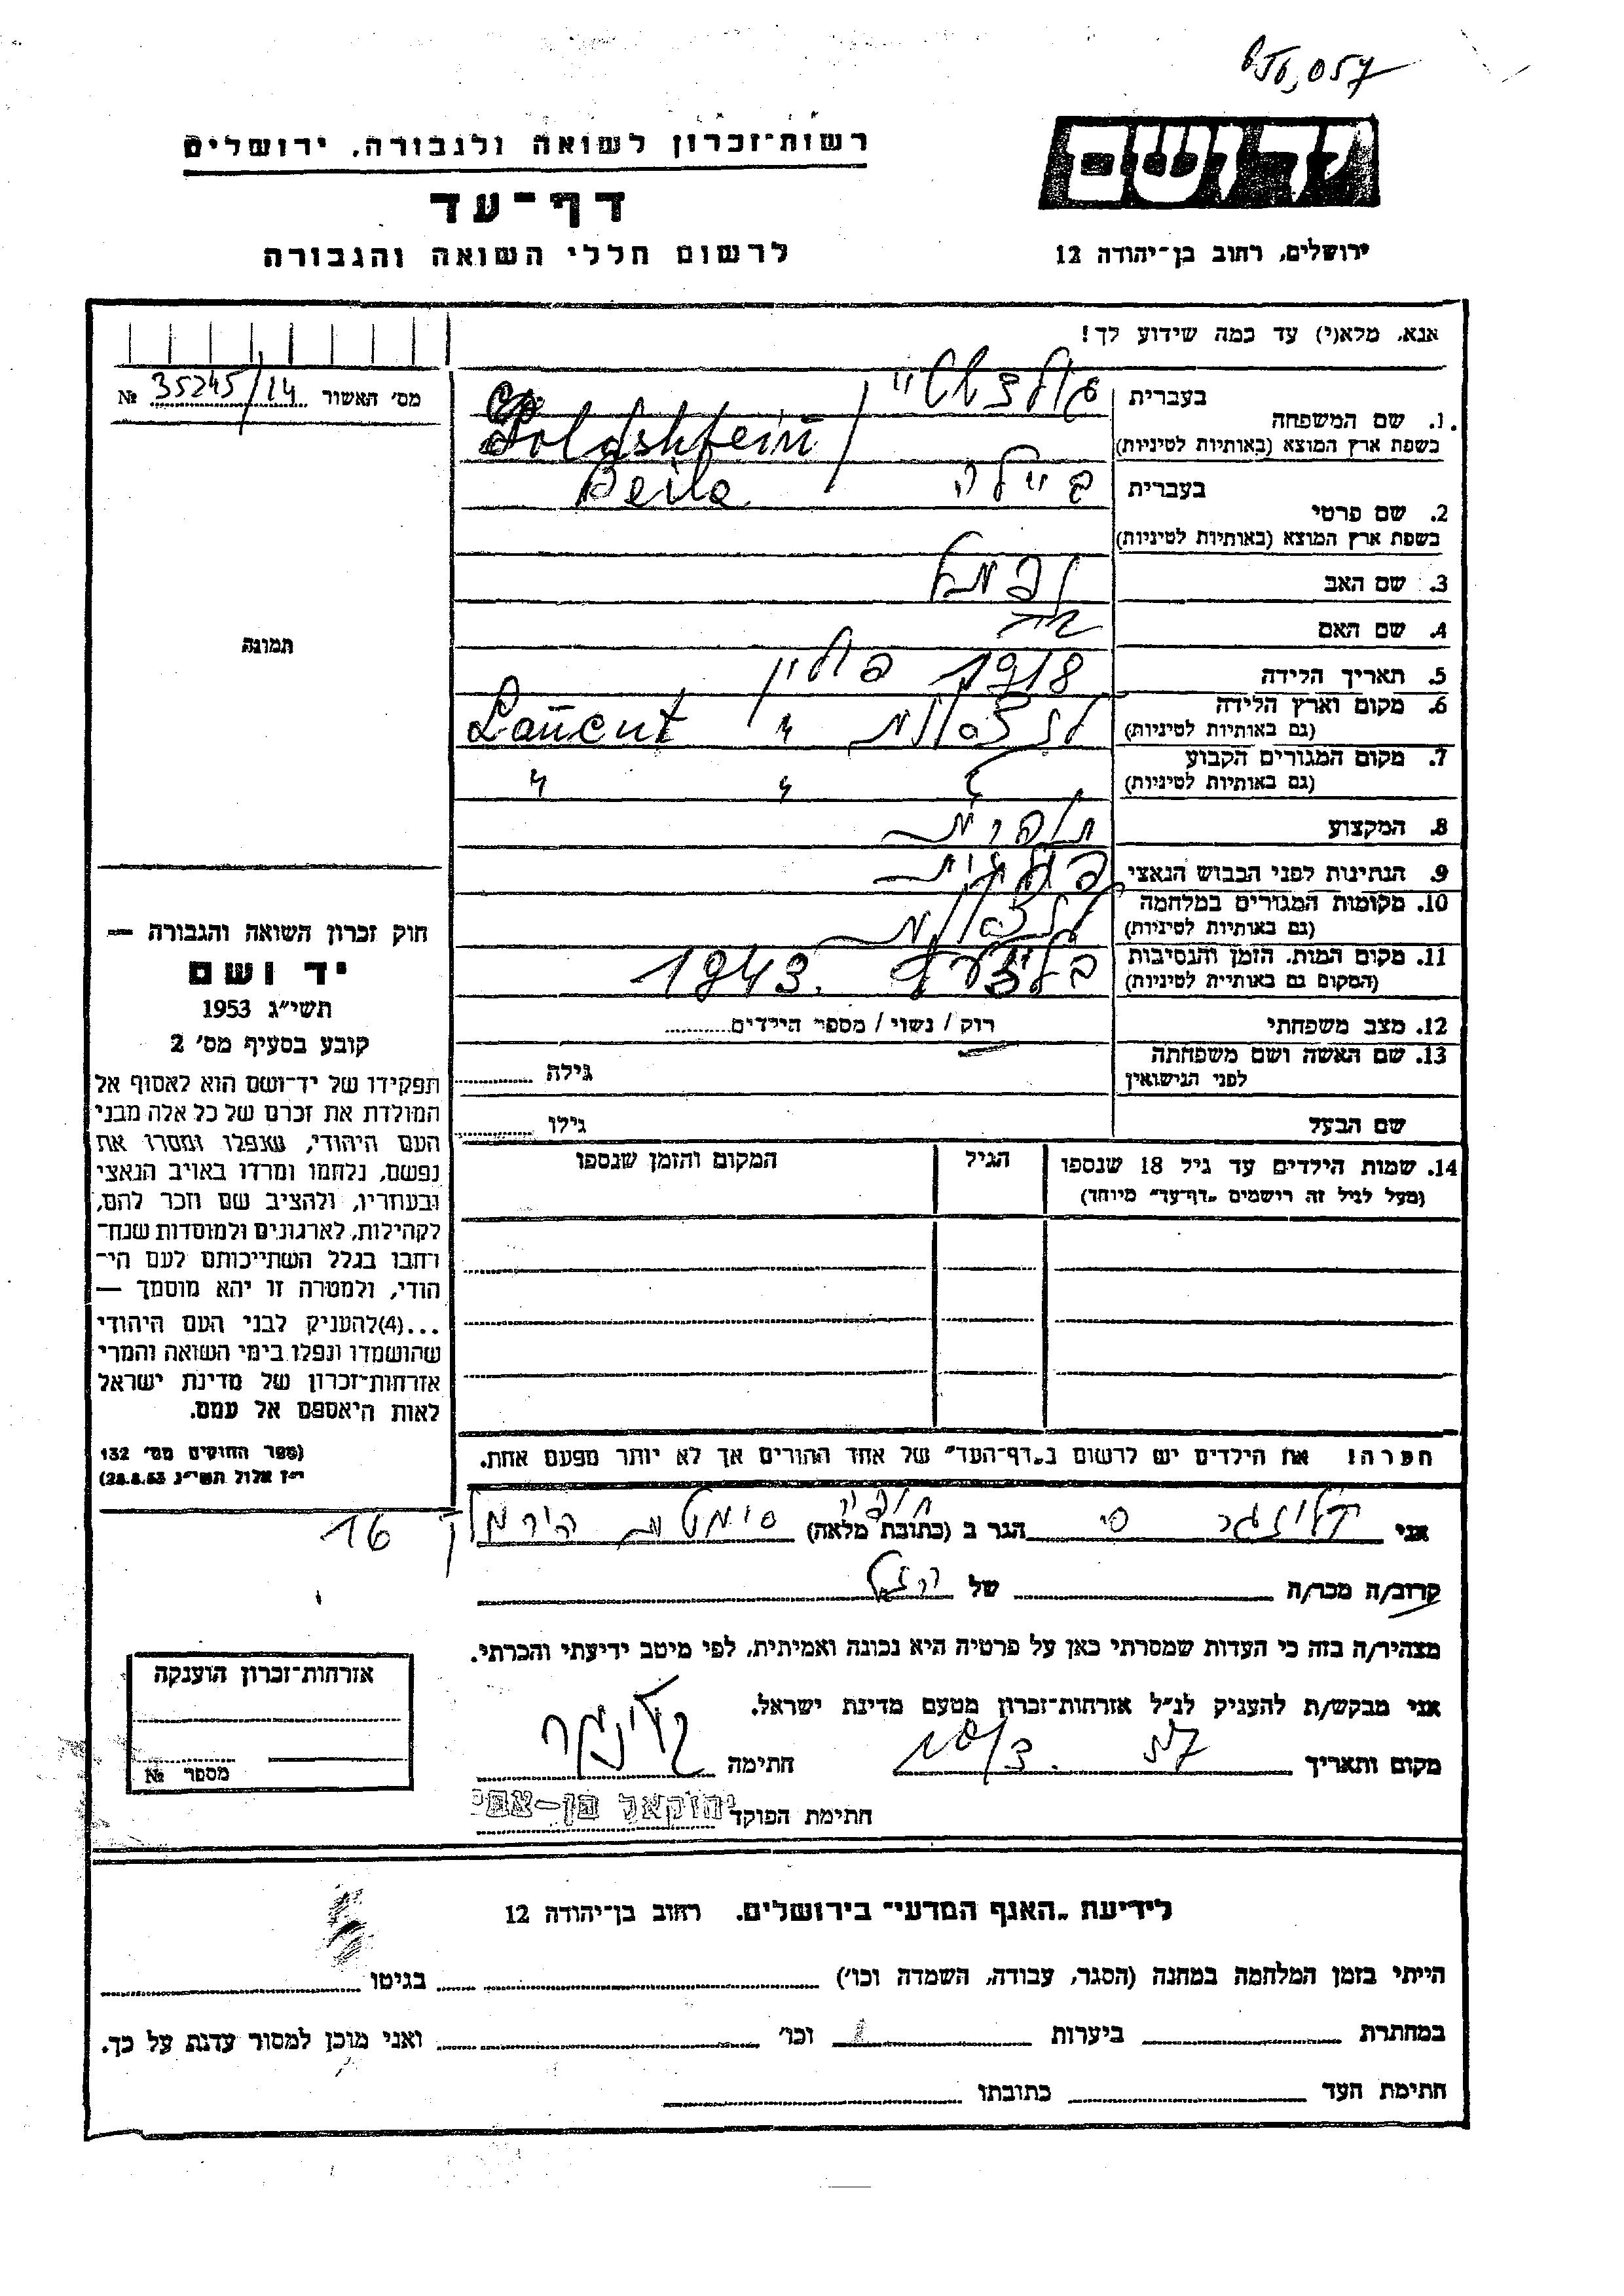 רשות־זכרון לשואה ולגבורה, ירושלים
דף־עד
לרשום חללי השואה והגבורה
ידושם
ירושלים, רחוב בן־יהודה 12
אנא, מלא(י) עד כמה שידוע לך!
מס׳ האשור 35245/14 №
1. שם המשפחה
בעברית
גולדשטיין
בשפת ארץ המוצא (באותיות לטיניות)
Goldshtein
2. שם פרטי
בעברית
ביילה
Beila
בשפת ארץ המוצא (באותיות לטיניות)
3. שם האב
4. שם האם
5. תאריך הלידה
1918 פולין
6. מקום וארץ הלידה
(גם באותיות לטיניות)
לנצוט " Lancut
7. מקום המגורים הקבוע
(גם באותיות לטיניות)
" "
8. המקצוע
תופרת
9. הנתינות לפני הכבוש הנאצי
פולנית
10. מקומות המגורים במלחמה
(גם באותיות לטיניות)
לנצוט
11. מקום המות. הזמן והנסיבות
(המקום גם באותיות לטיניות)
1943
12. מצב משפחתי
רוק / נשוי / מספר הילדים
13. שם האשה ושם משפחתה
לפני הנישואין
גילה
שם הבעל
גילו
14. שמות הילדים עד גיל 18 שנספו
(מעל לגיל זה רושמים „דף־עד״ מיוחד)
הגיל
המקום והזמן שנספו
תמונה
חוק זכרון השואה והגבורה —
יד ושם
תשי״ג 1953
קובע בסעיף מס׳ 2
תפקידו של יד־ושם הוא לאסוף אל
המולדת את זכרם של כל אלה מבני
העם היהודי, שנפלו ומסרו את
נפשם, נלחמו ומרדו באויב הנאצי
ובעוזריו, ולהציב שם וזכר להם,
לקהילות, לארגונים ולמוסדות שנח־
רחבו בגלל השתייכותם לעם הי־
הודי, ולמטרה זו יהא מוסמך —
...(4) להעניק לבני העם היהודי
שהושמדו ונפלו בימי השואה והמרי
אזרחות־זכרון של מדינת ישראל
לאות היאספם אל עמם.
(ספר החוקים מס׳ 132
י״ז אלול תשי״ג 28.8.53)
הערה! את הילדים יש לרשום ב„דף־העד״ של אחד ההורים אך לא יותר מפעם אחת.
אני
הגר ב (כתובת מלאה) חיפה סימטת הכרמל 16
קרוב/ה מכר/ה של
מצהיר/ה בזה כי העדות שמסרתי כאן על פרטיה היא נכונה ואמיתית, לפי מיטב ידיעתי והכרתי.
אני מבקש/ת להעניק לנ״ל אזרחות־זכרון מטעם מדינת ישראל.
מקום ותאריך
חתימה
חתימת הפוקד
אזרחות־זכרון הוענקה
מספר №
לידיעת „האגף המדעי״ בירושלים. רחוב בן־יהודה 12
הייתי בזמן המלחמה במחנה (הסגר, עבודה, השמדה וכו׳) בגיטו
במחתרת ביערות וכו׳ ואני מוכן למסור עדות על כך.
חתימת העד כתובתו